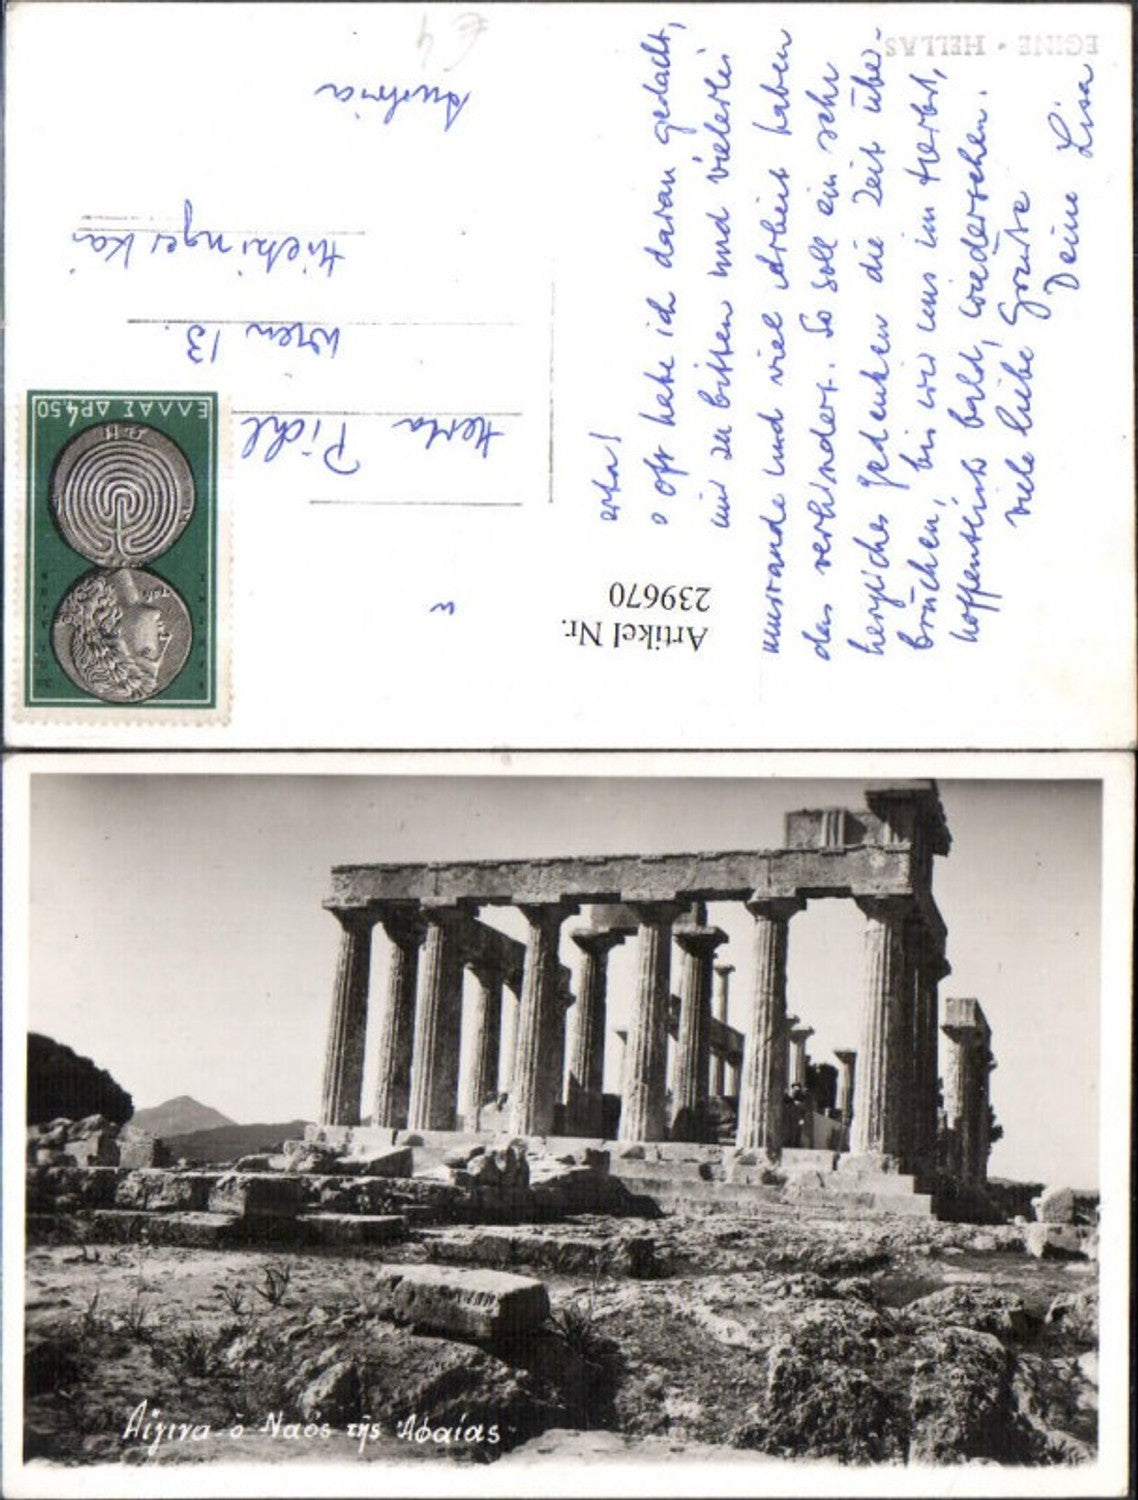 EGINE · HELLAS
erta!
o oft habe ich daran gedacht,
mir zu bitten und vielerlei
umstände und viel Arbeit haben
das verhindert. So soll ein sehr
herzliches Gedenken die Zeit über-
brücken, bis wir uns im Herbst,
hoffentlich bald, wiedersehen.
Viele liebe Grüsse
Deine Lisa
Herta Pichl
Wien 13.
Hietzinger Kai
Austria
€ 4
ΕΛΛΑΣ ΔΡ 4.50
Artikel Nr.
239670
Αἴγινα - ὁ Ναός τῆς Ἀφαίας